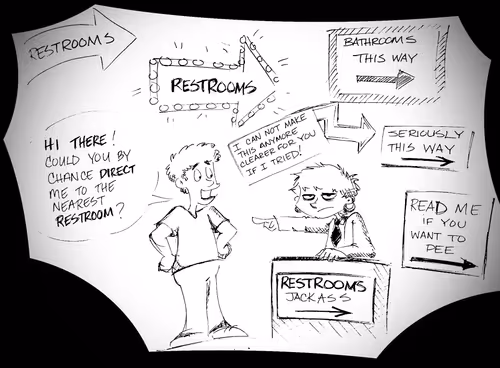 RESTROOMS
RESTROOMS
BATHROOMS
THIS WAY
HI THERE!
COULD YOU BY
CHANCE DIRECT
ME TO THE
NEAREST
RESTROOM?
I CAN NOT MAKE
THIS ANYMORE
CLEARER FOR YOU
IF I TRIED!
SERIOUSLY
THIS WAY
READ ME
IF YOU
WANT TO
PEE
RESTROOMS
JACKASS